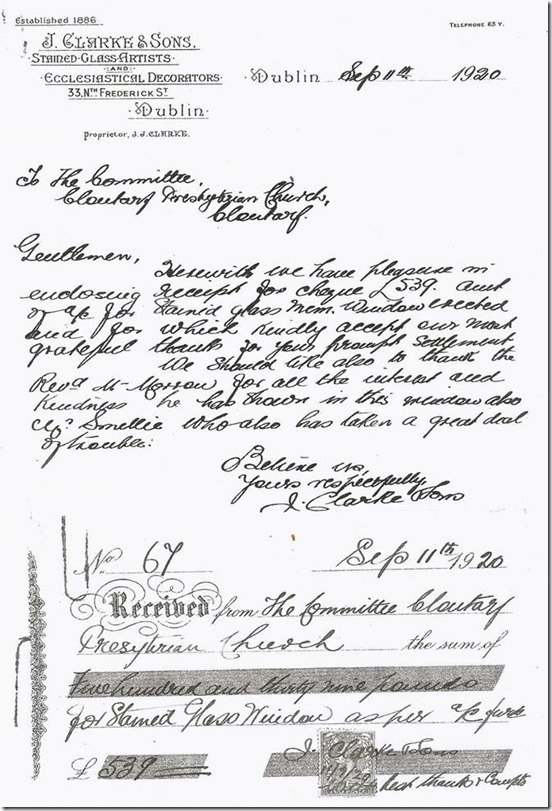 Established 1886
TELEPHONE 63 Y.
J. CLARKE & SONS.
STAINED-GLASS-ARTISTS
·AND·
ECCLESIASTICAL DECORATORS
33, NTH FREDERICK ST
·Dublin·
Proprietor, J.J. CLARKE.
Dublin Sep 11th 1920
To The Committee,
Clontarf Presbyterian Church,
Clontarf.
Gentlemen,
Herewith we have pleasure in
enclosing receipt for cheque £539. amt
of a/c for Stained glass Mem. Window erected
and for which kindly accept our most
grateful thanks for your prompt settlement.
We should like also to thank the
Revd Mr Morrow for all the interest and
kindness he has shown in this window also
Mr Smellie who also has taken a great deal
of trouble.
Believe us,
Yours respectfully
J. Clarke & Sons
No 67 Sep 11th 1920
Received from The Committee Clontarf
Presbyterian Church the sum of
Five hundred and thirty nine pounds
for Stained Glass Window as per a/c
J. Clarke & Sons
£ 539 11/9/20
best thanks & Compts